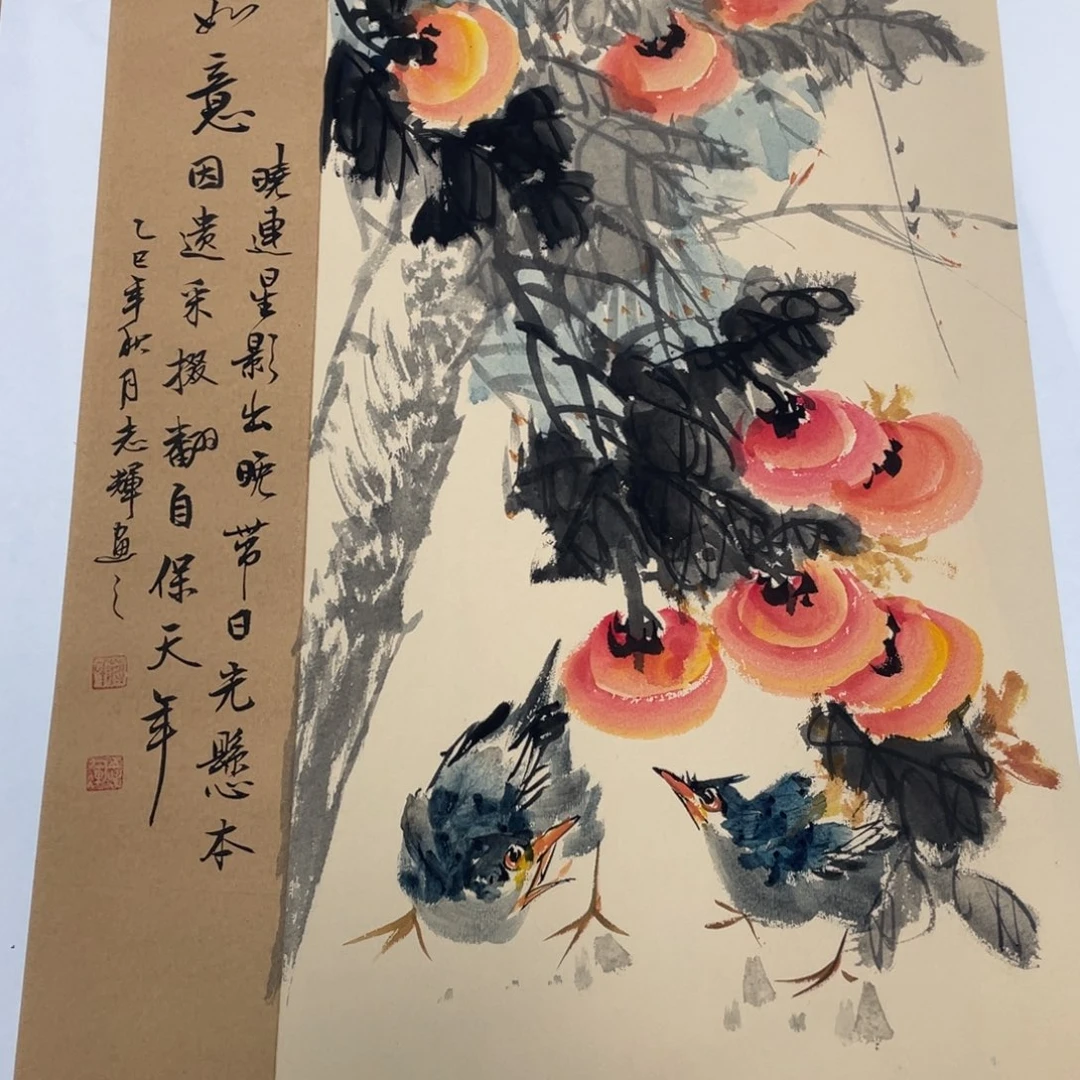 如意
曉連星影出晚帶日光懸本
因遺采掇翻自保天年
乙巳年秋月志輝畫之